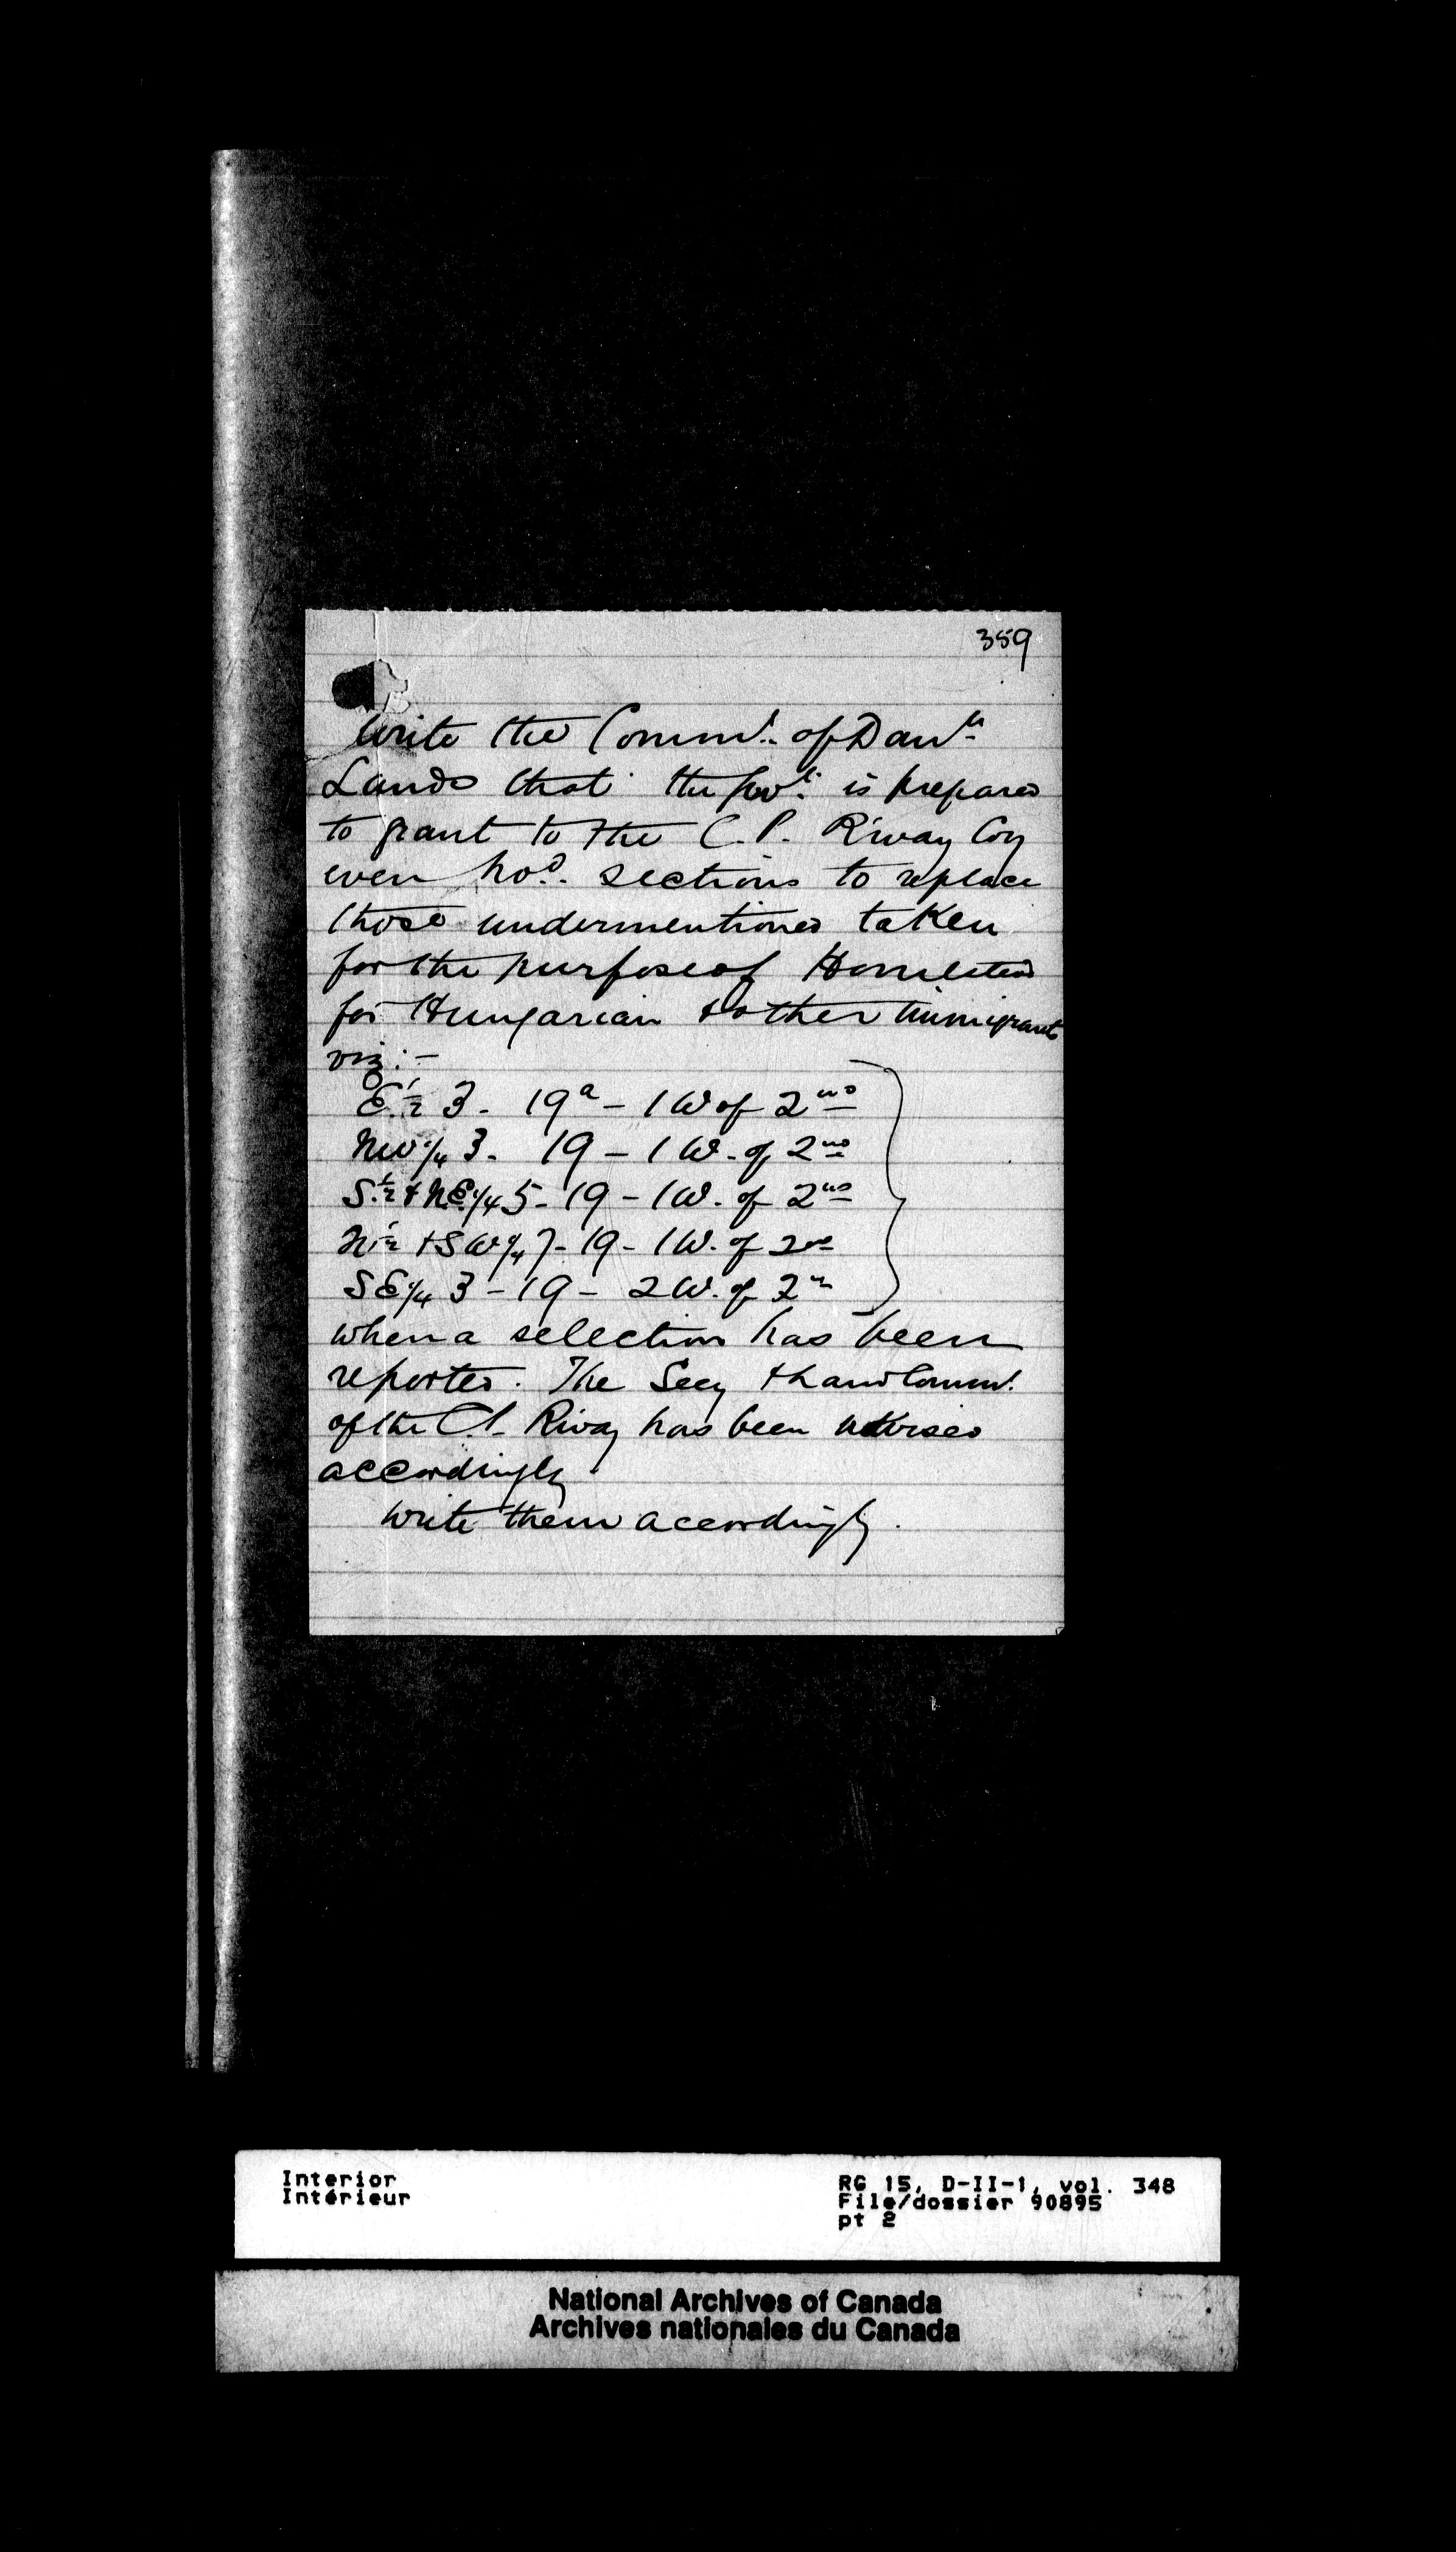 359
Write the Commr. of Domn
Lands that the Govt. is prepared
to grant to the C.P. R'way Coy
even nod. sections to replace
those undermentioned taken
for the purpose of Homestead
for Hungarian & other immigrants
viz:-
E.½ 3 - 19a - 1 W of 2nd
NW¼ 3 - 19 - 1 W. of 2nd
S.½ & NE¼ 5 - 19 - 1 W. of 2nd
N½ & SW¼ 7 - 19 - 1 W. of 2nd
SE¼ 3 - 19 - 2 W. of 2n
when a selection has been
reported. The Secy & Land Commr.
of the C.P. R'way has been advised
accordingly
Write them accordingly.
Interior
Intérieur
RG 15, D-II-1, vol. 348
File/dossier 90895
pt 2
National Archives of Canada
Archives nationales du Canada